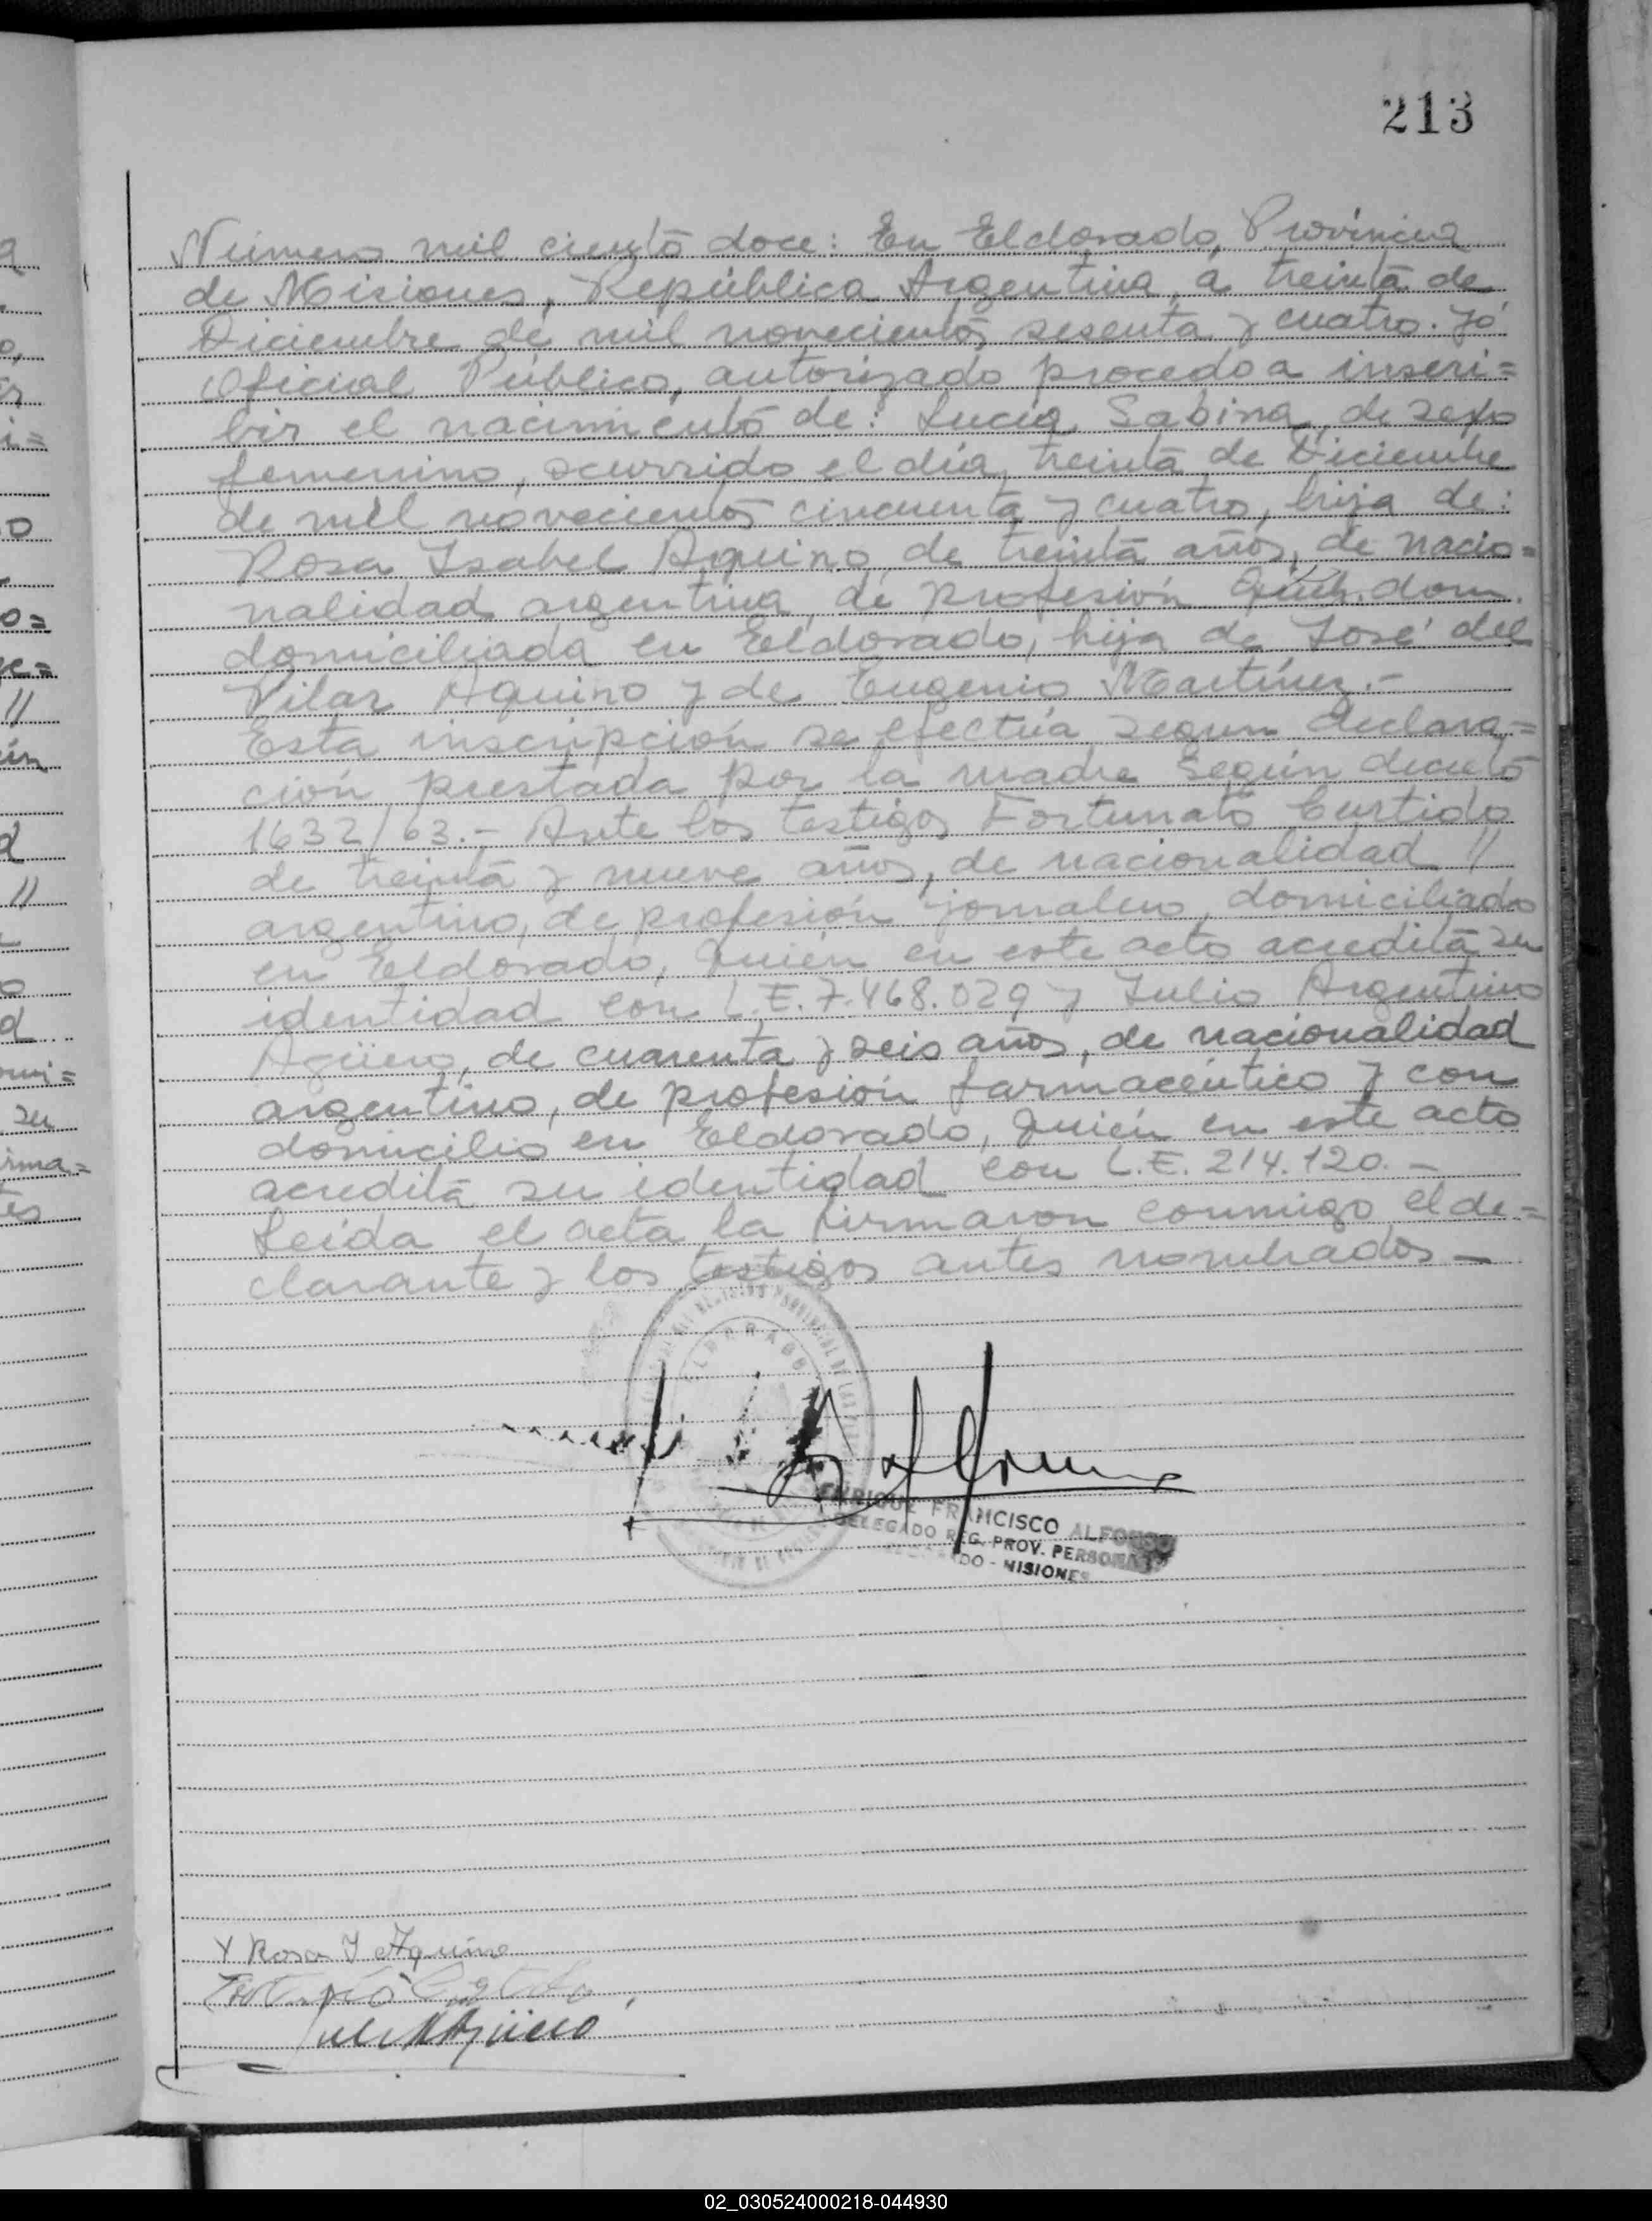 213
Número mil ciento doce: En Eldorado, Provincia
de Misiones, República Argentina, a treinta de
Diciembre de mil novecientos sesenta y cuatro. Yo
Oficial Público, autorizado procedo a inscri=
bir el nacimiento de: Lucia Sabina, de sexo
femenino, ocurrido el día, treinta de Diciembre
de mil novecientos cincuenta y cuatro, hija de:
Rosa Isabel Aquino, de treinta años, de nacio=
nalidad argentina, de profesión dom.
domiciliada en Eldorado, hija de José del
Pilar Aquino y de Eugenia Martínez.-
Esta inscripción se efectúa segun declara=
ción prestada por la madre según decreto
1632/63.- Ante los testigos Fortunato Curtido
de treinta y nueve años, de nacionalidad //
argentino, de profesión jornalero, domiciliado
en Eldorado, quién en este acto acredita su
identidad con L.E. 7.468.029 y Julio Argentino
Agüero, de cuarenta y seis años, de nacionalidad
argentino, de profesión farmacéutico y con
domicilio en Eldorado, quién en este acto
acredita su identidad con L.E. 214.120.-
Leída el acta la firmaron conmigo el de=
clarante y los testigos antes nombrados-
ELDORADO
ENRIQUE FRANCISCO ALFONSO
DELEGADO REG. PROV. PERSONAS
DO - MISIONES
X Rosa I Aquino
02_030524000218-044930